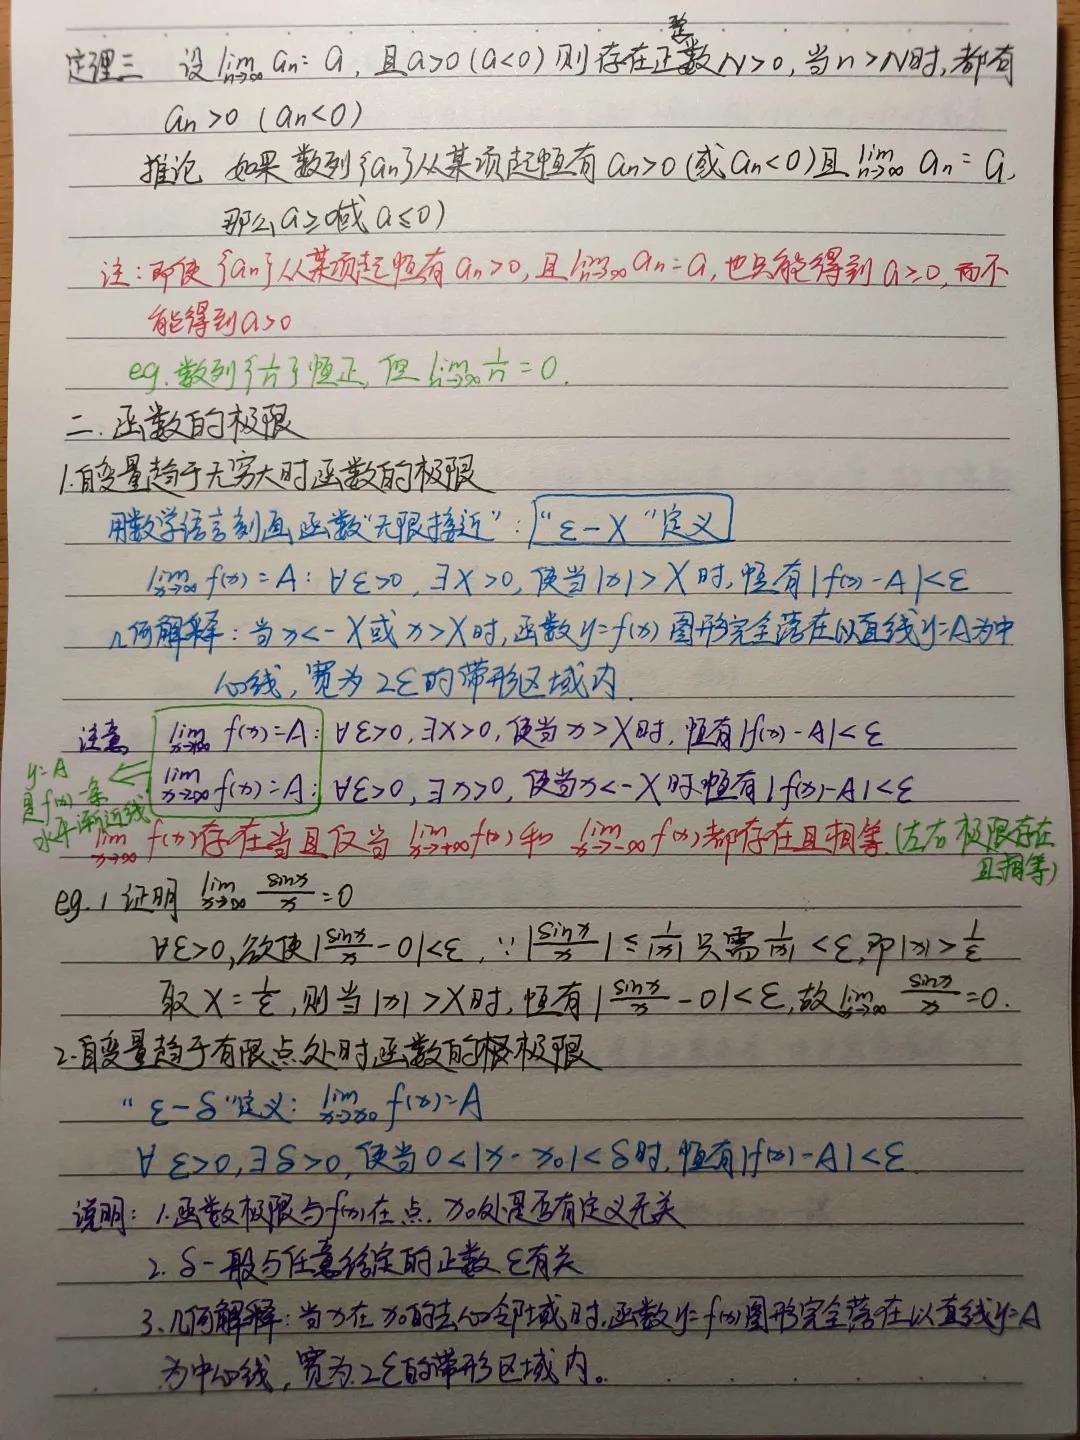 定理三 设 lim n→∞ an = a, 且a>0 (a<0) 则存在正整数N>0, 当n>N时, 都有
an>0 (an<0)
推论 如果数列{an}从某项起恒有an>0 (或an<0) 且 lim n→∞ an = a,
那么a≥0(或 a≤0)
注: 即使{an}从某项起恒有an>0, 且 lim n→∞ an = a, 也只能得到a≥0, 而不
能得到a>0
eg. 数列{1/n}恒正, 但 lim n→∞ 1/n = 0.
二. 函数的极限
1.自变量趋于无穷大时函数的极限
用数学语言刻画函数"无限接近": "ε-X"定义
lim x→∞ f(x)=A: ∀ε>0, ∃X>0, 使当|x|>X时, 恒有|f(x)-A|<ε
几何解释: 当x<-X或x>X时, 函数y=f(x)图形完全落在以直线y=A为中
心线, 宽为2ε的带形区域内.
注意 lim x→+∞ f(x)=A: ∀ε>0, ∃X>0, 使当x>X时, 恒有|f(x)-A|<ε
lim x→-∞ f(x)=A: ∀ε>0, ∃x>0, 使当x<-X时恒有|f(x)-A|<ε
y=A
是f(x)一条
水平渐近线
lim x→∞ f(x)存在当且仅当 lim x→+∞ f(x)和 lim x→-∞ f(x)都存在且相等.(左右极限存在
且相等)
eg.1 证明 lim x→∞ sinx/x =0
∀ε>0, 欲使|sinx/x -0|<ε, ∵ |sinx/x| ≤ 1/|x| 只需 1/|x| <ε, 即|x|> 1/ε
取X= 1/ε, 则当|x|>X时, 恒有|sinx/x -0|<ε, 故 lim x→∞ sinx/x =0.
2.自变量趋于有限点处时函数的极限
"ε-δ"定义: lim x→x0 f(x)=A
∀ε>0, ∃δ>0, 使当0<|x-x0|<δ时, 恒有|f(x)-A|<ε.
说明: 1.函数极限与f(x)在点x0处是否有定义无关
2. δ一般与任意给定的正数ε有关
3.几何解释: 当x在x0的去心邻域时, 函数y=f(x)图形完全落在以直线y=A
为中心线, 宽为2ε的带形区域内。